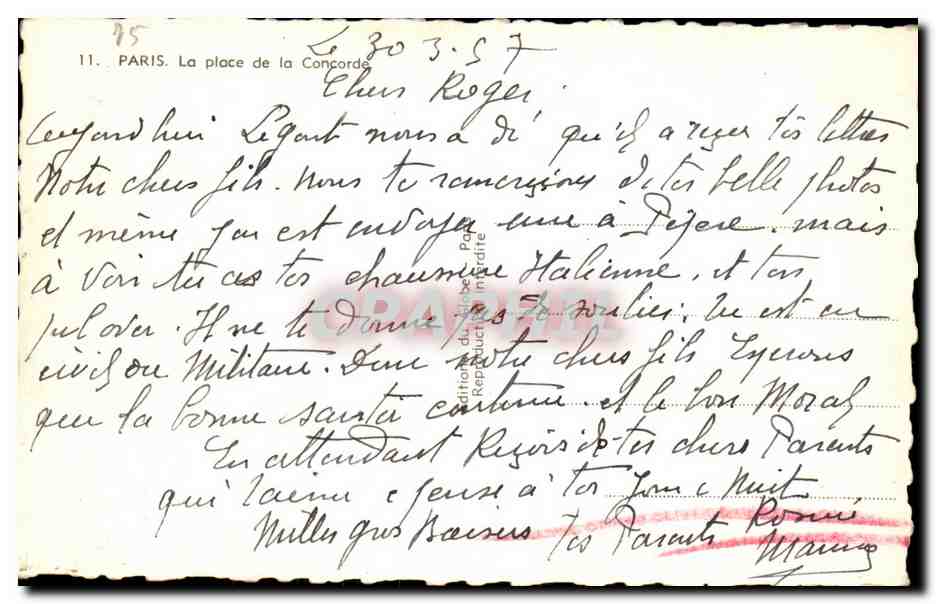 75
Le 30 3. 57
11. PARIS. La place de la Concorde
Chers Roger,
aujourd hui Legart nous a di qu'il a reçu tes lettres
Notre chers fils. nous te remercions de tes belle photos
et même j'en est envoyer une à mais
à voir tu as tes chaussure Italienne, et ton
pulover. Il ne te donne pas de soulier. tu est en
civil ou Militaire. Donc notre chers fils Espérons
que ta bonne santé continue. et le bon Moral
En attendant Reçois de tes chers Parents
qui t'aime e pense à toi jour e Nuit
Milles gros Baisers tes Parents
Editions du Globe, Paris
Reproduction interdite
CPAPHIL